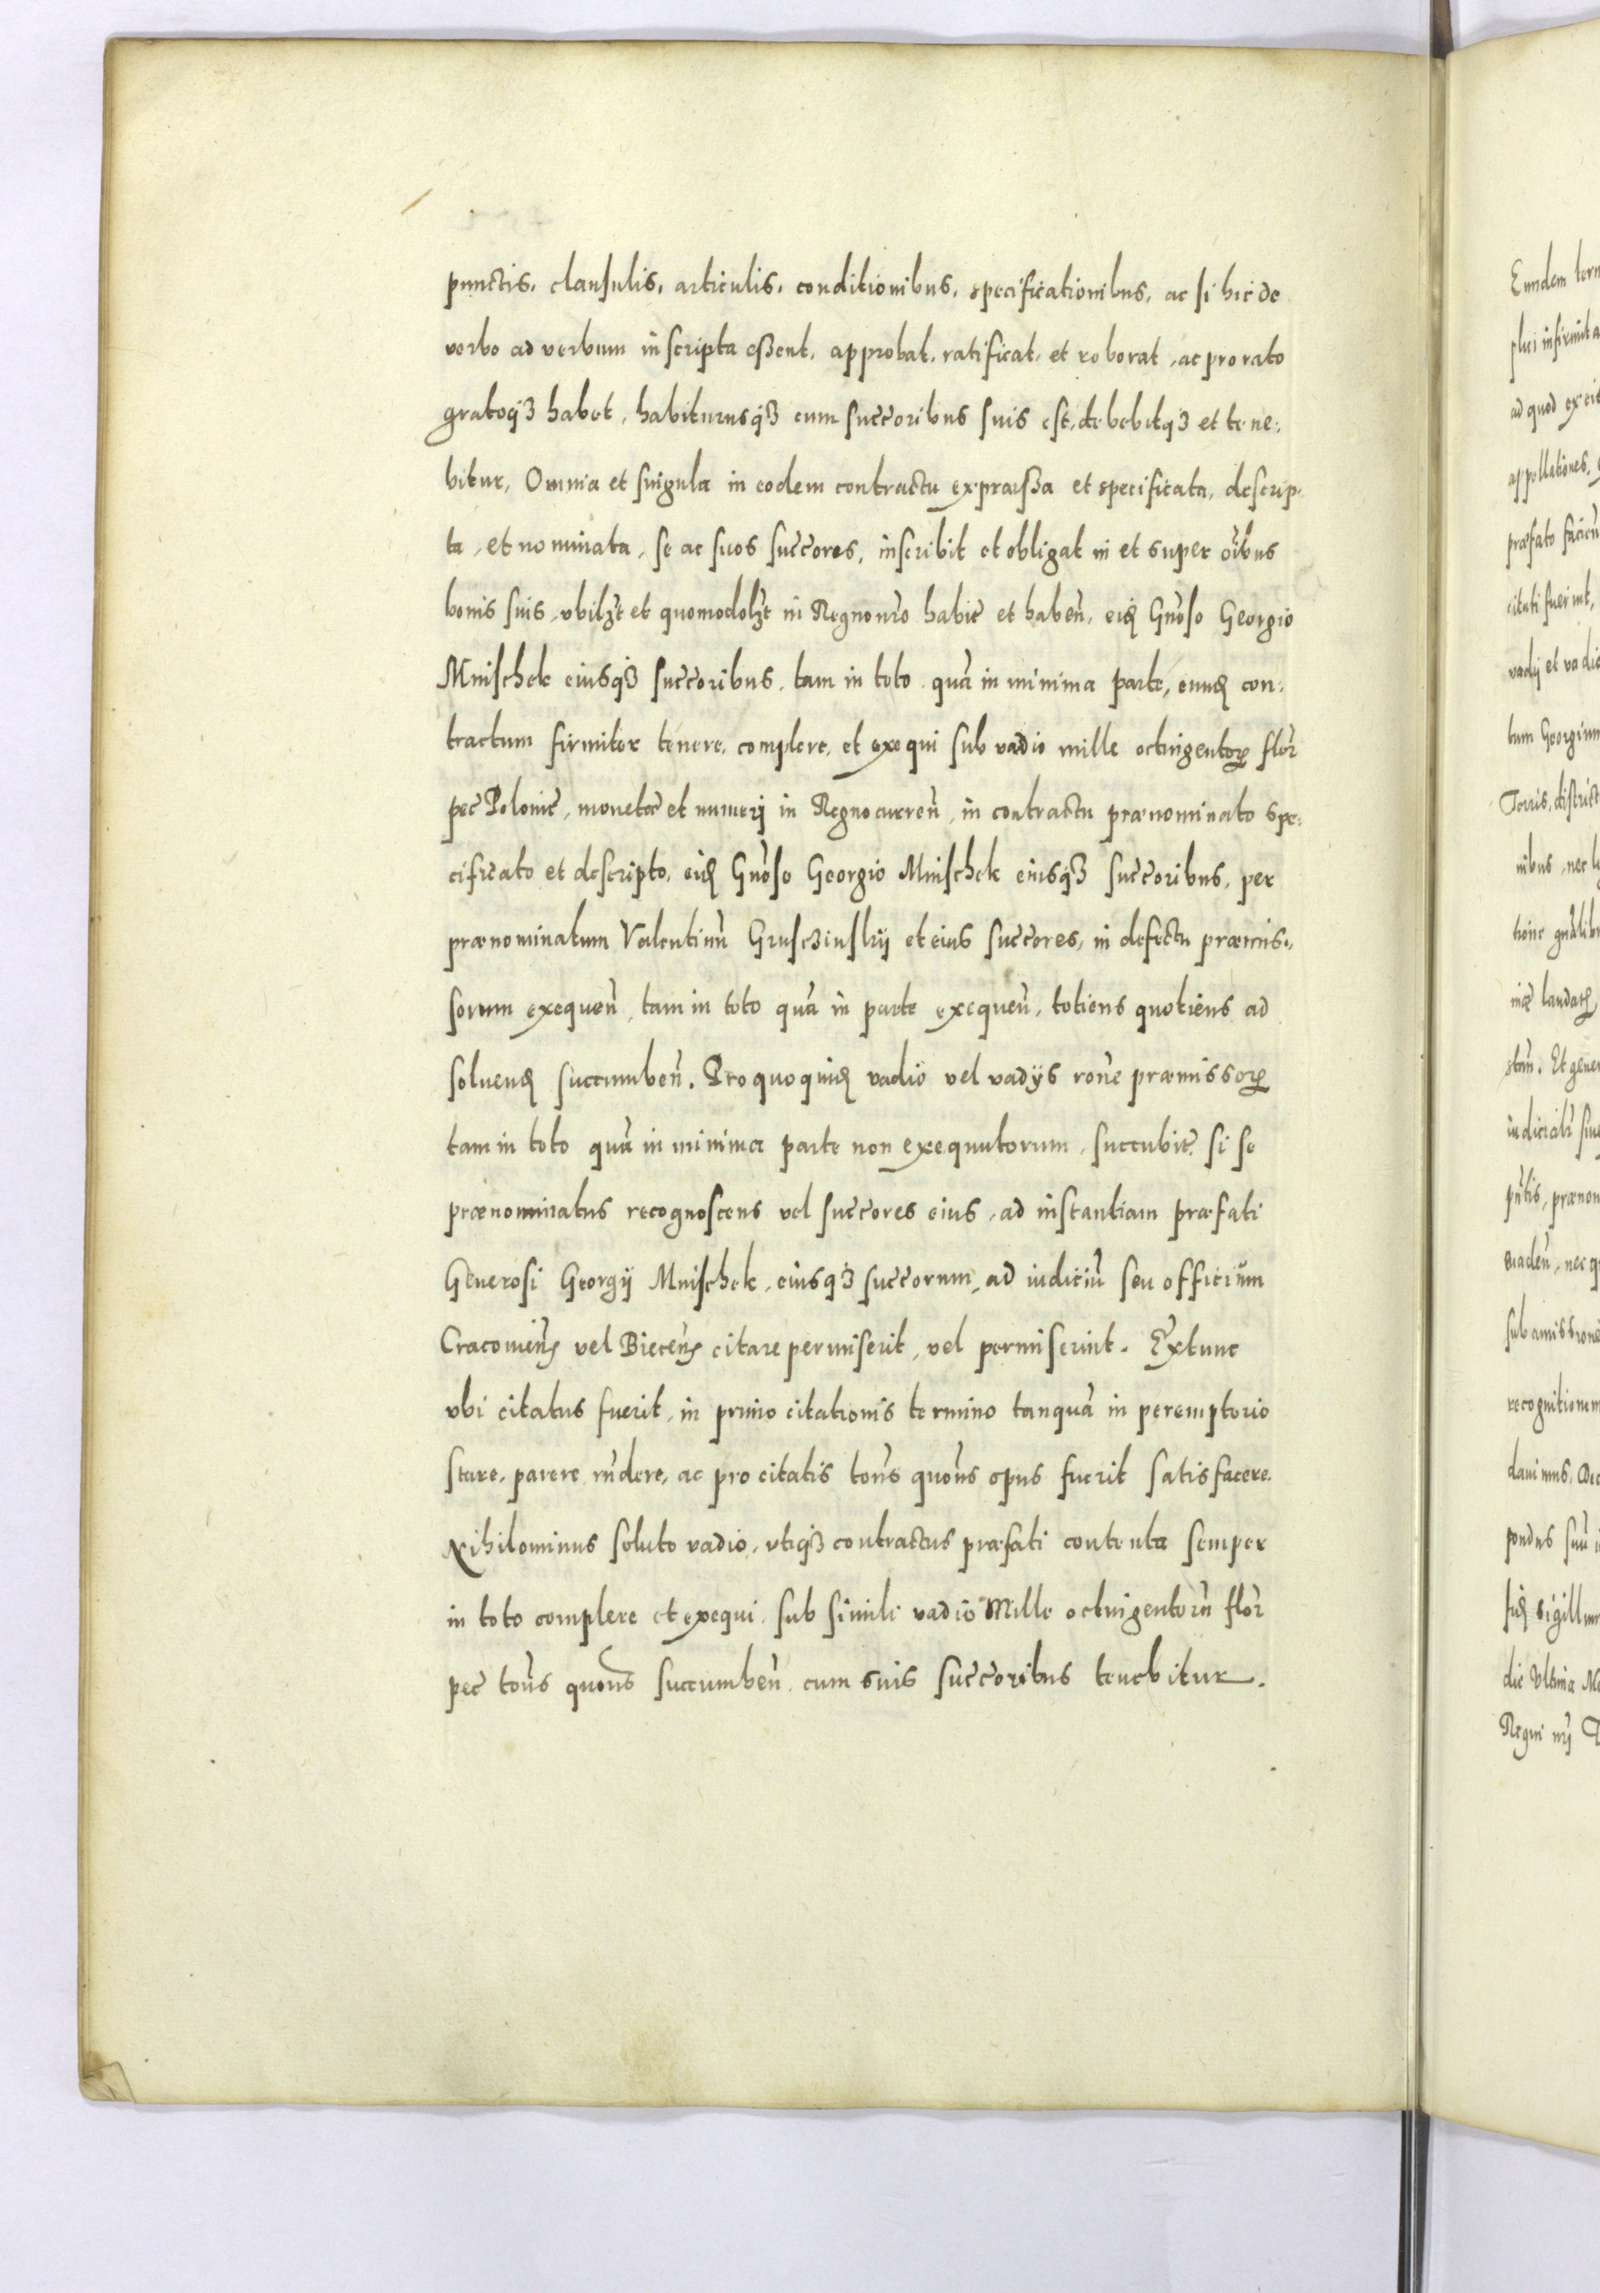 punctis, clausulis, articulis, conditionibus, specificationibus, ac si hic de
verbo ad verbum inscripta essent, approbat, ratificat, et roborat, ac pro rato
gratoq3 habet, habiturusq3 cum succoribus suis est, debebitq3 et tene:
bitur, Omnia et singula in eodem contractu expræssa et specificata, descrip
ta, et nominata, se ac suos succores, inscribit et obligat in et super oibus
bonis suis, vbilzt et quomodolzt in Regno nro habit et haben, eid Gnoso Georgio
Mnischek eiusq3 succoribus, tam in toto quã in minima parte, eund con:
tractum firmiter tenere, complere, et exequi sub vadio mille octingentorꝝ flor
pec Polonic, monetæ et numeri in Regno curren, in contractu prænominato spe:
cificato et descripto, eid Gnoso Georgio Mnischek eiusq3 succoribus, per
prænominatum Valentinũ Gruschinskij et eius succores, in defectu præmis,
sorum exequen, tam in toto quã in parte exequen, totiens quotiens ad
soluend succumben. Pro quoquid vadio vel vadijs rone præmissorꝝ
tam in toto quã in minima parte non exequutorum, succubit si se
prænominatus recognoscens vel succores eius, ad instantiam præfati
Generosi Georgij Mnischek, eiusq3 succorum, ad iudiciũ seu officium
Cracouiens vel Biecens citare permiserit, vel permiserint. Extunc
vbi citatus fuerit, in primo citationis termino tanquã in peremptorio
stare, parere rndere, ac pro citatis tons quons opus fuerit satisfacere.
Nihilominus soluto vadio, vtiq3 contractus præfati contenta semper
in toto complere et exequi sub simili vadio Mille octingentorũ flor
pec tons quons succumben cum suis succoribus tenebitur.
Eundem
ad quod
appellationes,
præfato
citati fuerint,
vadij et vadio
tum Georgium
Terris, district
nibus, nec
Et gene
sub amissione
recognitionem
dauimus,
pondus suũ
die Vltima
Regni nrj